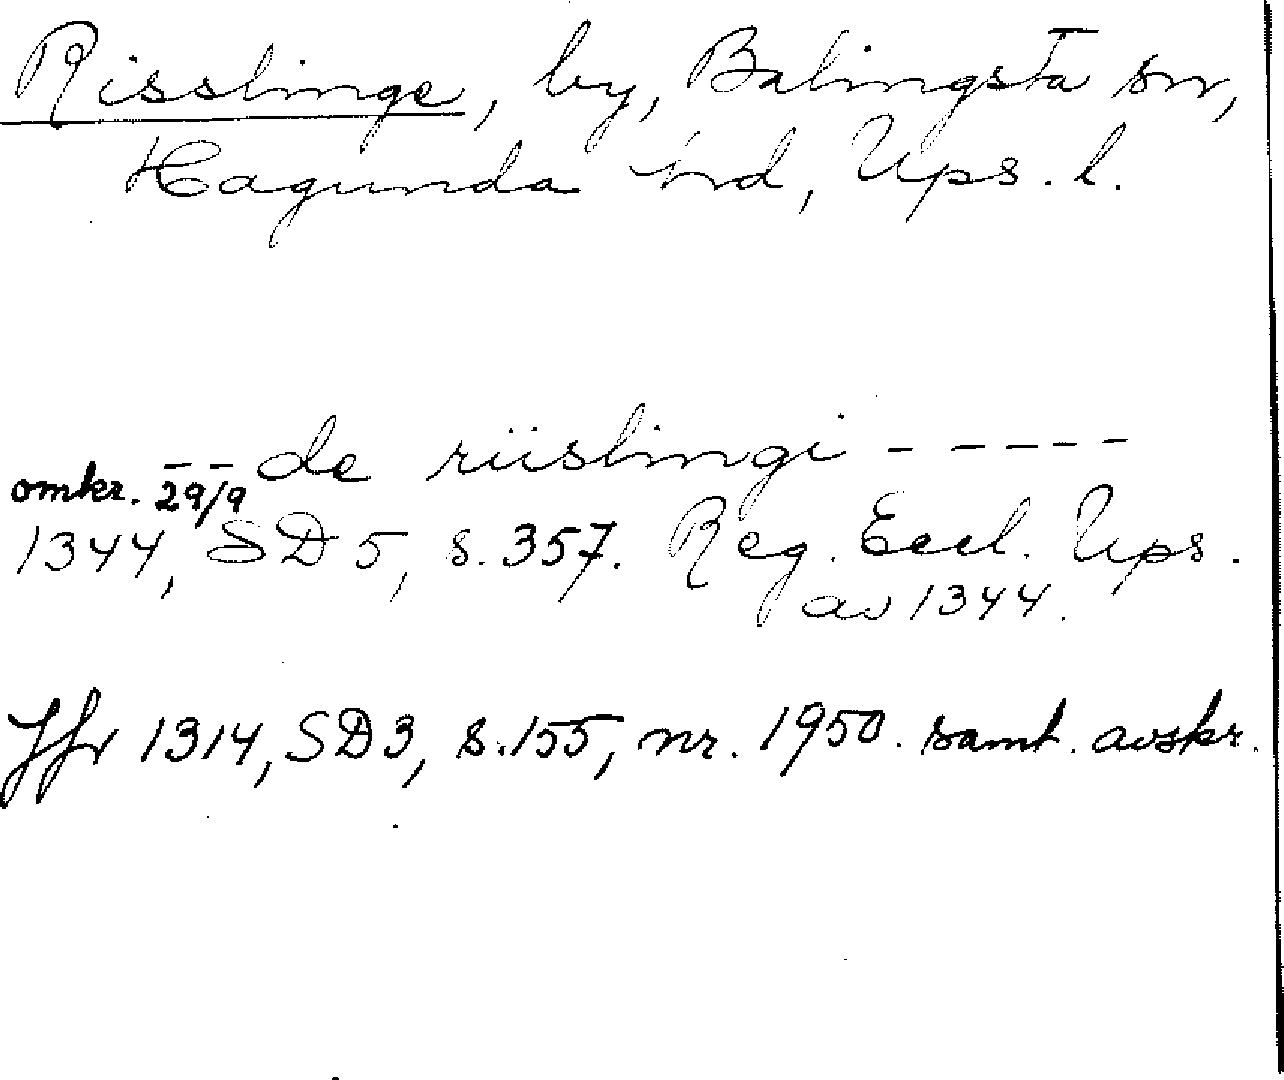 Risslinge, by, Balingsta sn,
Hagunda hd, Ups. l.
-- de riislingi -----
omkr. 29/9
1344, SD 5, s. 357. Reg. Eccl. Ups.
av 1344.
Jfr 1314, SD 3, s. 155, nr. 1950. samt. avskr.